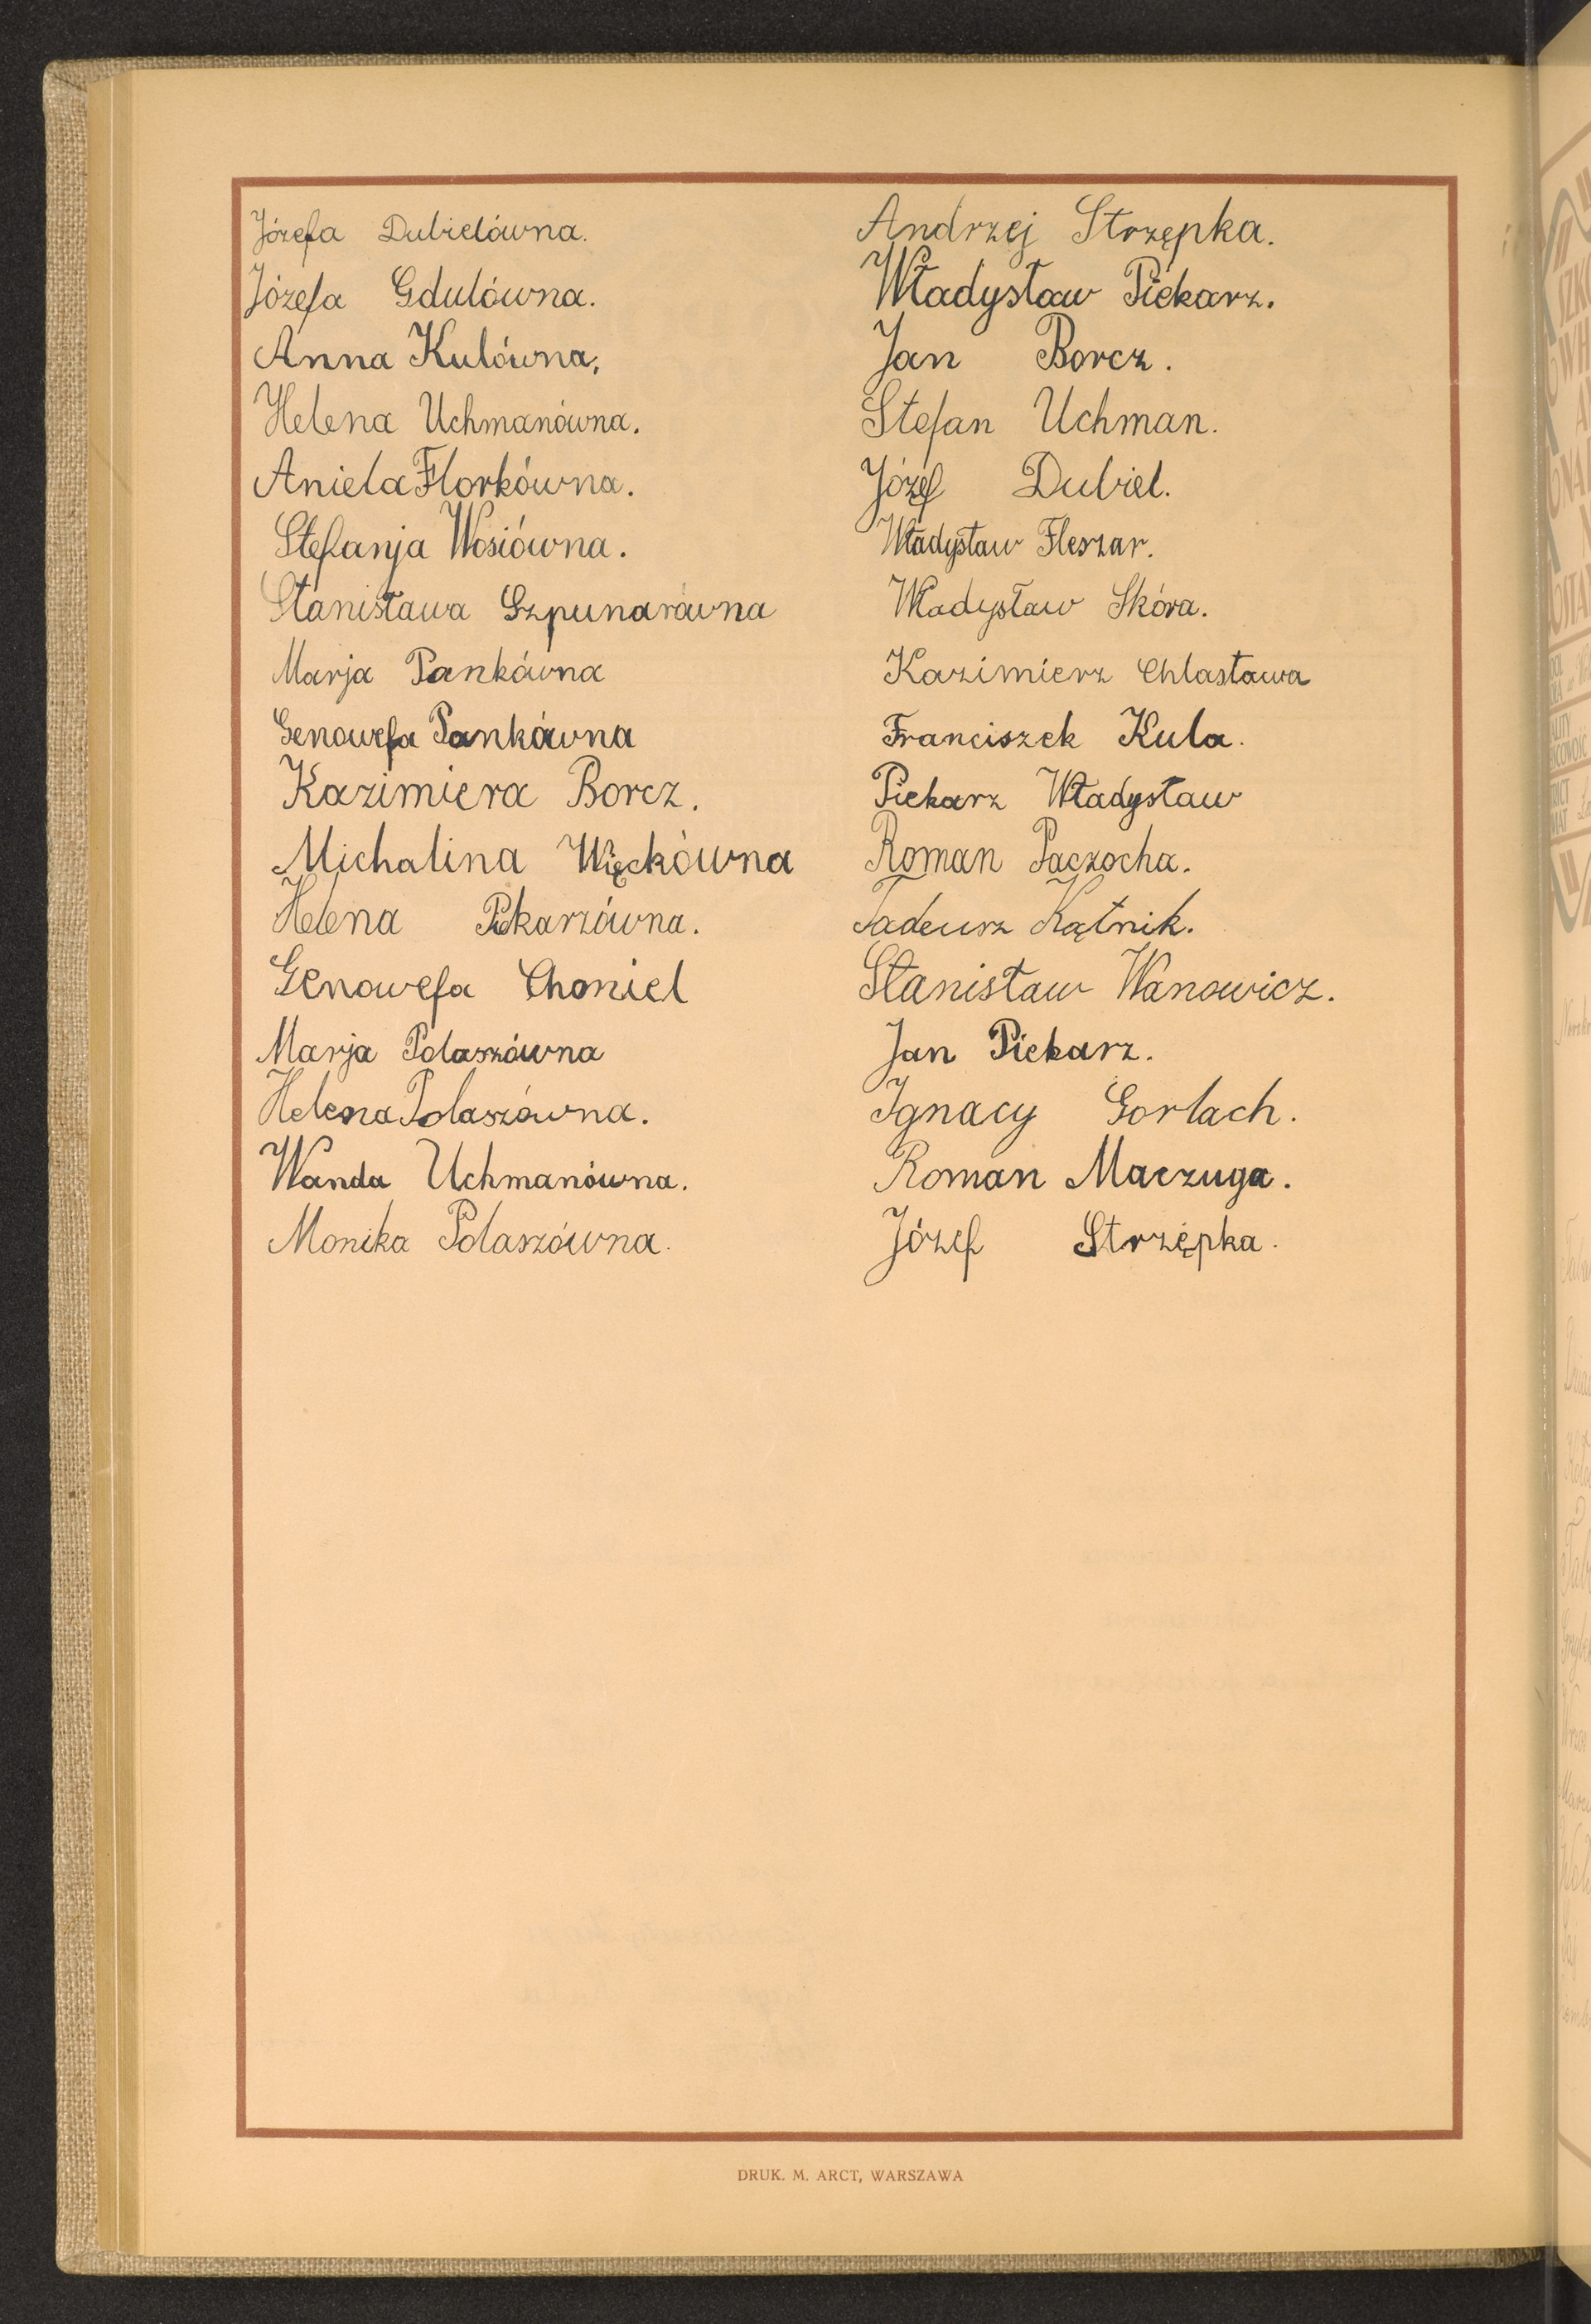 Józefa Dubielówna.
Józefa Gdulówna.
Anna Kulówna.
Helena Uchmanówna.
Aniela Florkówna.
Stefanja Wosiówna.
Stanisława Szpunarówna
Marja Pankówna
Genowefa Pankówna
Kazimiera Borcz.
Michalina Więckówna
Helena Piekarzówna.
Genowefa Chomiel
Marja Polaszówna
Helena Polaszówna.
Wanda Uchmanówna.
Monika Polaszówna.
Andrzej Strzępka.
Władysław Piekarz.
Jan Borcz.
Stefan Uchman.
Józef Dubiel.
Władysław Fleszar.
Władysław Skóra.
Kazimierz Chlastawa
Franciszek Kula.
Piekarz Władysław
Roman Paczocha.
Tadeusz Kątnik.
Stanisław Wanowicz.
Jan Piekarz.
Ignacy Gorlach.
Roman Maczuga.
Józef Strzępka.
DRUK. M. ARCT, WARSZAWA